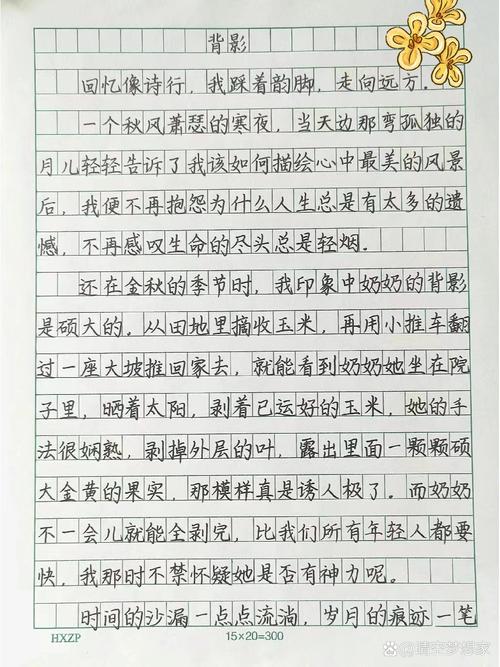 背影
回忆像诗行，我踩着韵脚，走向远方。
一个秋风萧瑟的寒夜，当天边那弯孤独的
月儿轻轻告诉了我该如何描绘心中最美的风景
后，我便不再抱怨为什么人生总是有太多的遗
憾，不再感叹生命的尽头总是轻烟。
还在金秋的季节时，我印象中奶奶的背影
是硕大的。从田地里摘收玉米，再用小推车翻
过一座大坡推回家去，就能看到奶奶她坐在院
子里，晒着太阳，剥着已运好的玉米，她的手
法很娴熟，剥掉外层的叶，露出里面一颗颗硕
大金黄的果实，那模样真是诱人极了。而奶奶
不一会儿就能全剥完，比我们所有年轻人都要
快，我那时不禁怀疑她是否有神力呢。
时间的沙漏一点点流淌，岁月的痕迹一笔
HXZP 15×20=300
@晴宋梦想家